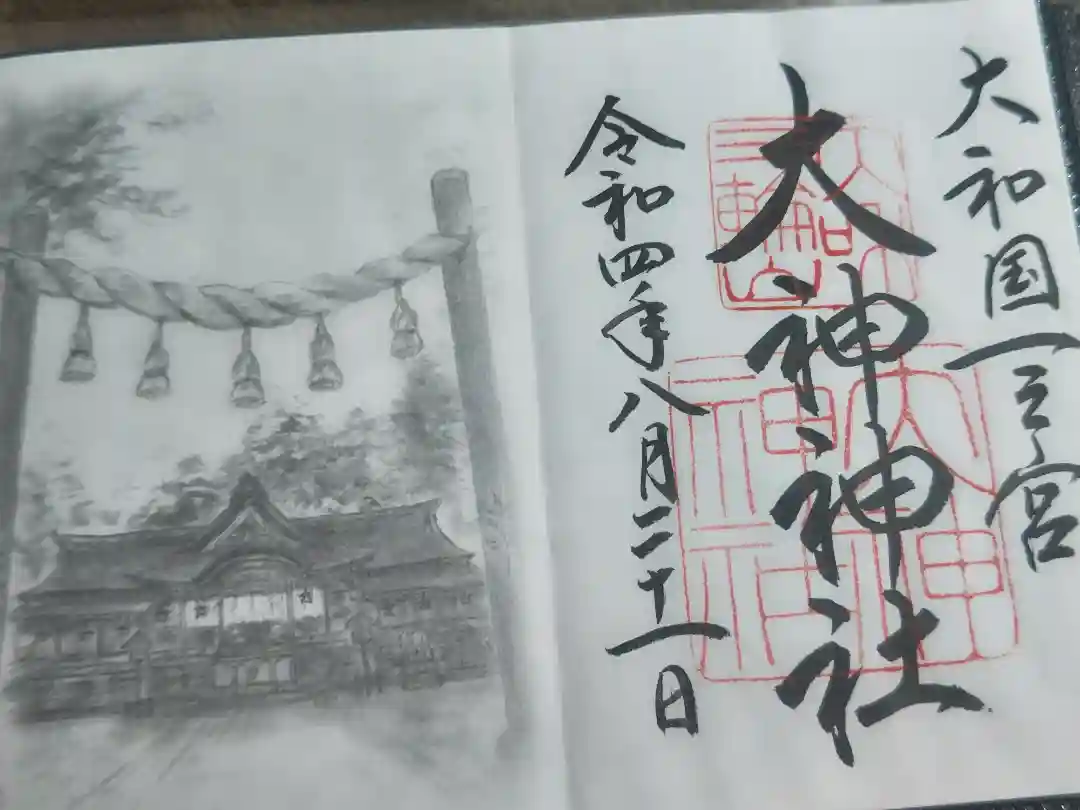 大和国一之宮
大神神社
令和四年八月二十一日
大神
神社